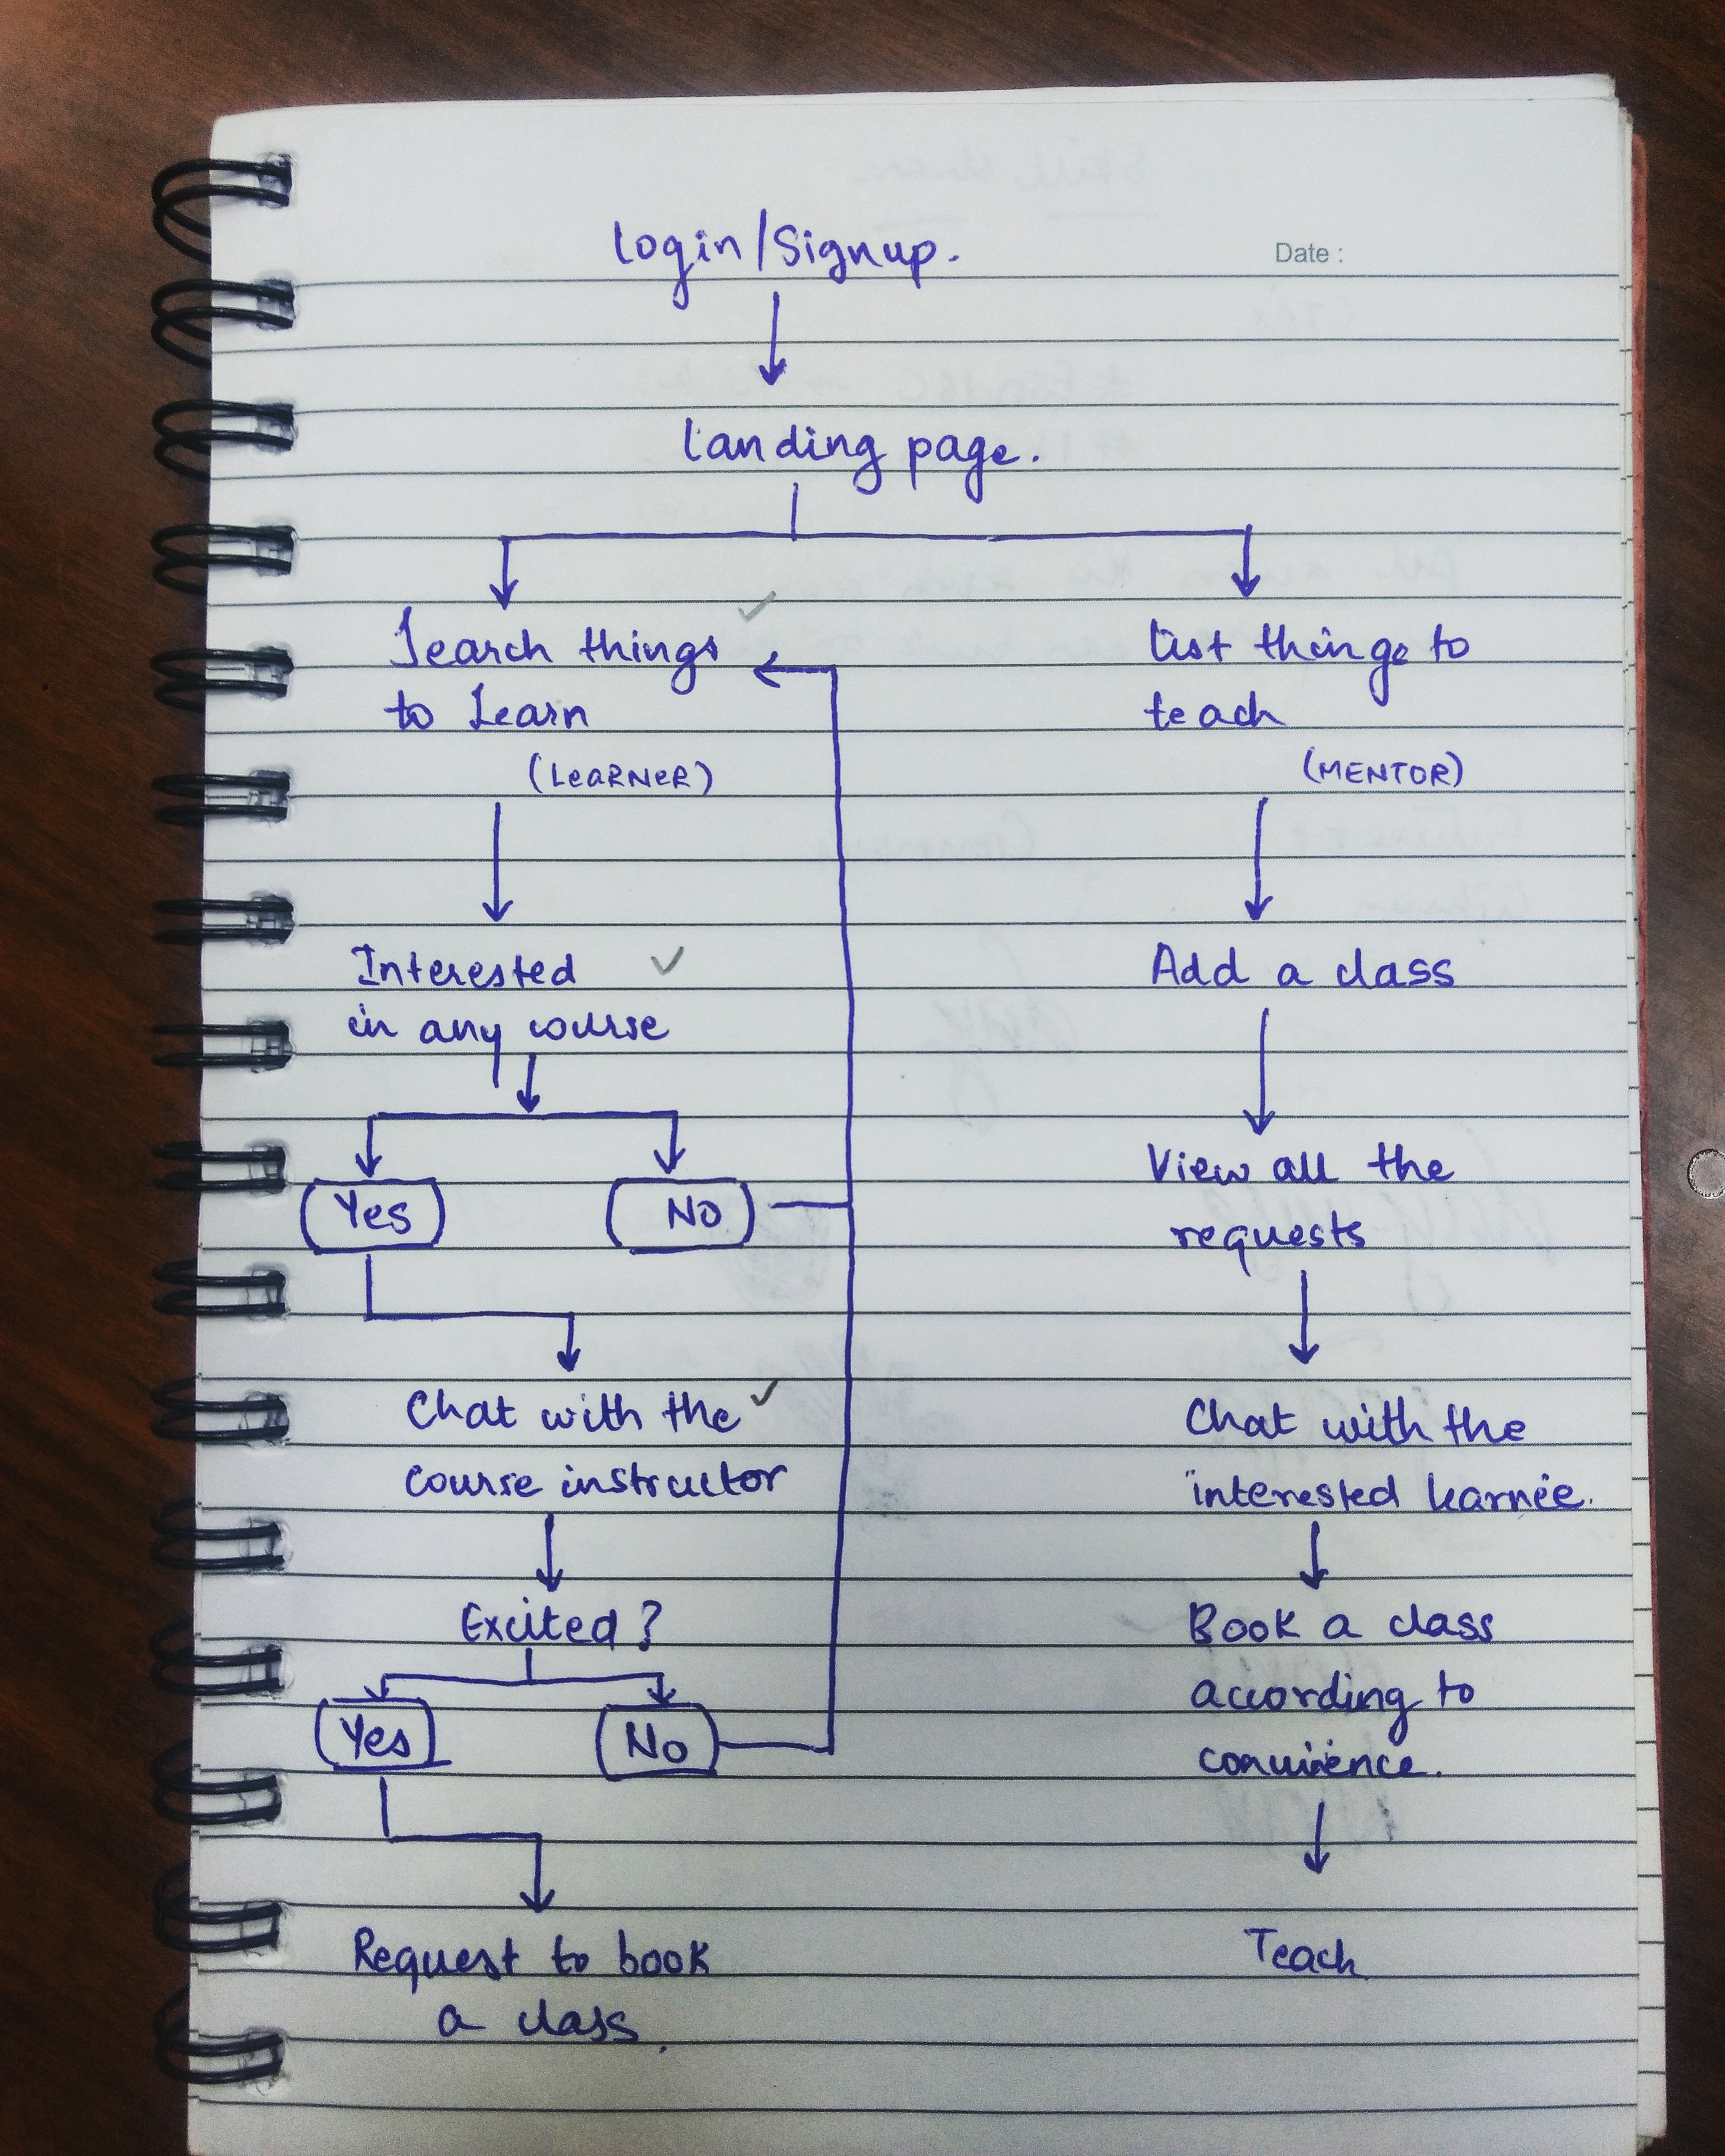 Login/Signup.
Date :
Landing page.
Search things
to Learn
(LEARNER)
Interested
in any course
Yes
No
Chat with the
course instructor
Excited?
Yes
No
Request to book
a class.
List things to
teach
(MENTOR)
Add a class
View all the
requests
Chat with the
interested
Book a class
according to
Teach